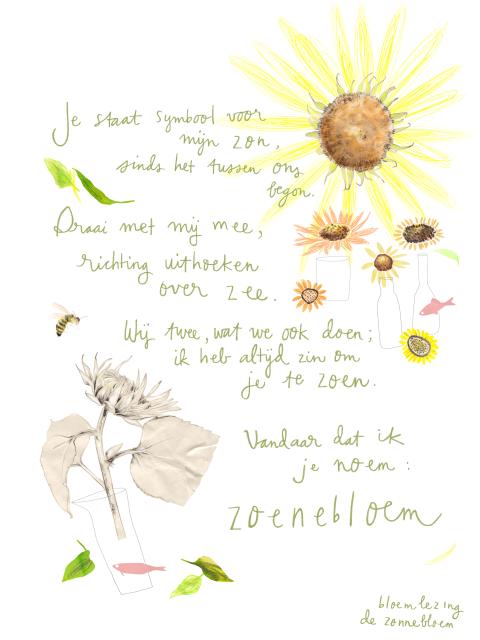 Je staat symbool voor
mijn zon,
sinds het tussen ons
begon.
Draai met mij mee,
richting uithoeken
over zee.
Wij twee, wat we ook doen;
ik heb altijd zin om
je te zoen.
Vandaar dat ik
je noem:
zoenebloem
bloemlezing
de zonnebloem